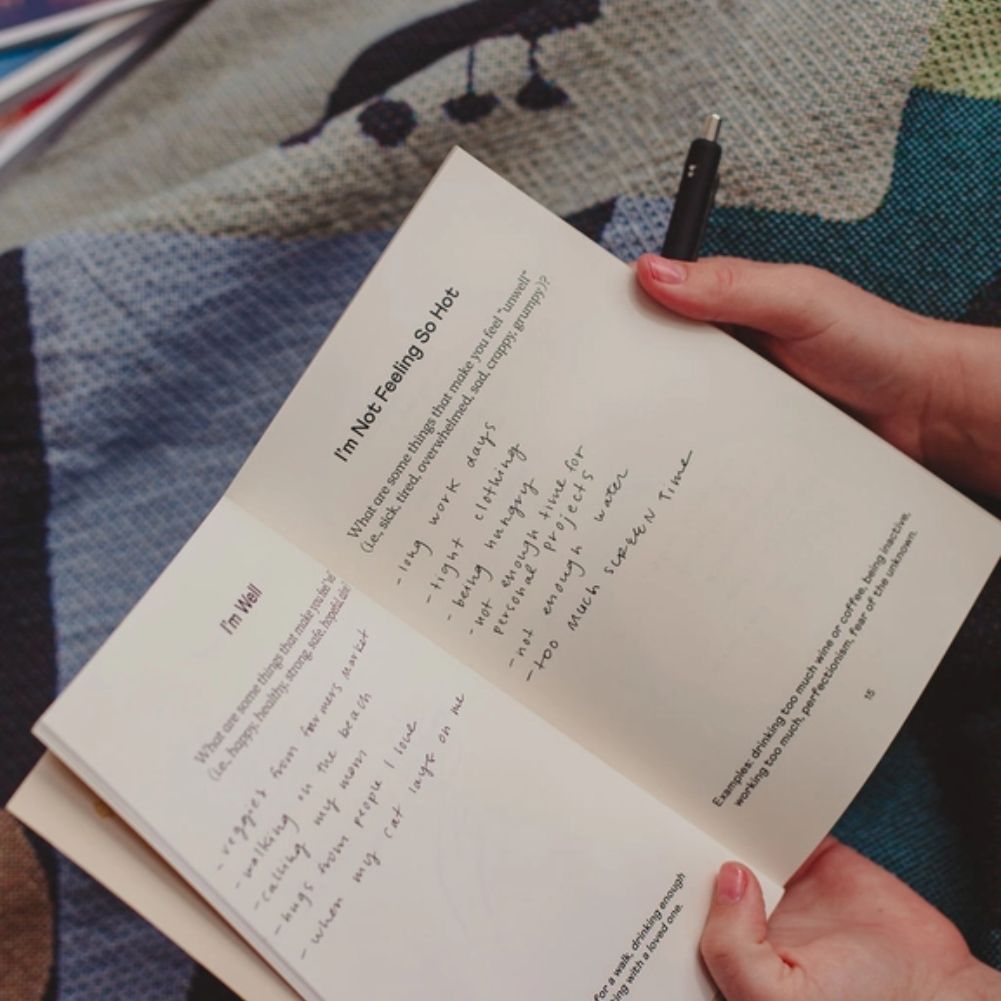 I'm Well
What are some things that make you feel
(i.e., happy, healthy, strong, safe, hopeful,
- veggies from farmers market
- walking on the beach
- calling my mom
- hugs from people I love
- when my cat lays on me
for a walk, drinking enough
with a loved one.
I'm Not Feeling So Hot
What are some things that make you feel "unwell"
(i.e., sick, tired, overwhelmed, sad, crappy, grumpy)?
- long work days
- tight clothing
- being hungry
- not enough time for
personal projects
- not enough water
- too much screen time
Examples: drinking too much wine or coffee, being inactive,
working too much, perfectionism, fear of the unknown.
15